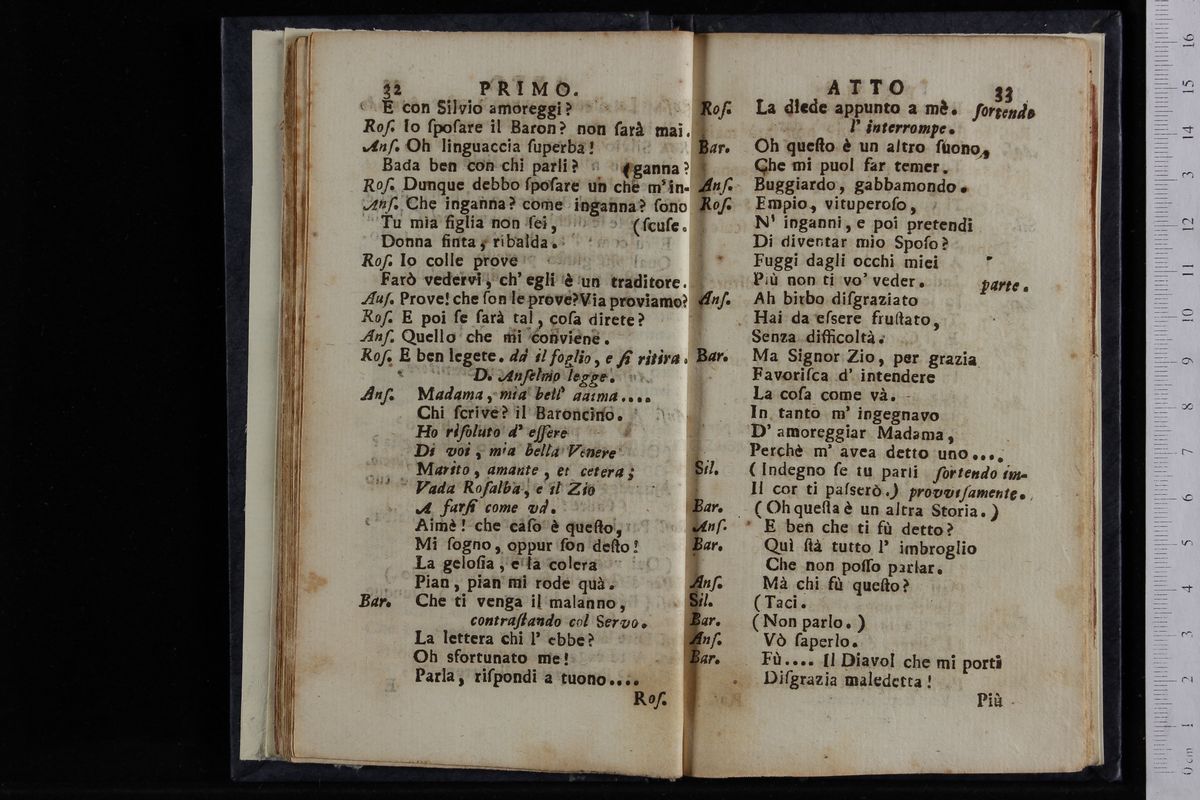 32 PRIMO.
E con Silvio amoreggi?
Roſ. Io ſpoſare il Baron? non ſarà mai.
Anſ. Oh linguaccia ſuperba!
Bada ben con chi parli? (ganna?
Roſ. Dunque debbo ſpoſare un che m'in-
Anſ. Che inganna? come inganna? ſono
Tu mia figlia non ſei, (ſcuſe.
Donna finta, ribalda.
Roſ. Io colle prove
Farò vedervi, ch' egli è un traditore.
Auſ. Prove! che ſon le prove? Via proviamo?
Roſ. E poi ſe ſarà tal, coſa direte?
Anſ. Quello che mi conviene.
Roſ. E ben legete. dà il foglio, e ſi ritira.
D. Anſelmo legge.
Anſ. Madama, mia bell' anima....
Chi ſcrive? il Baroncino.
Ho riſoluto d' eſſere
Di voi, mia bella Venere
Marito, amante, et cetera;
Vada Roſalba, e il Zio
A farſi come và.
Aimè! che caſo è queſto,
Mi ſogno, oppur ſon deſto!
La geloſia, e la colera
Pian, pian mi rode quà.
Bar. Che ti venga il malanno,
contraſtando col Servo.
La lettera chi l' ebbe?
Oh sfortunato me!
Parla, riſpondi a tuono....
Roſ.
ATTO 33
Roſ. La diede appunto a mè. ſortendo
l' interrompe.
Bar. Oh queſto è un altro ſuono,
Che mi puol far temer.
Anſ. Buggiardo, gabbamondo.
Roſ. Empio, vituperoſo,
N' inganni, e poi pretendi
Di diventar mio Spoſo?
Fuggi dagli occhi miei
Più non ti vo' veder. parte.
Anſ. Ah birbo diſgraziato
Hai da eſsere fruſtato,
Senza difficoltà.
Bar. Ma Signor Zio, per grazia
Favoriſca d' intendere
La coſa come và.
In tanto m' ingegnavo
D' amoreggiar Madama,
Perchè m' avea detto uno....
Sil. (Indegno ſe tu parli ſortendo im-
Il cor ti paſserò.) provviſamente.
Bar. (Oh queſta è un altra Storia.)
Anſ. E ben che ti fù detto?
Bar. Quì ſtà tutto l' imbroglio
Che non poſſo parlar.
Anſ. Mà chi fù queſto?
Sil. (Taci.
Bar. (Non parlo.)
Anſ. Vò ſaperlo.
Bar. Fù.... Il Diavol che mi porti
Diſgrazia maledetta!
Più
0 cm 1 2 3 4 5 6 7 8 9 10 11 12 13 14 15 16